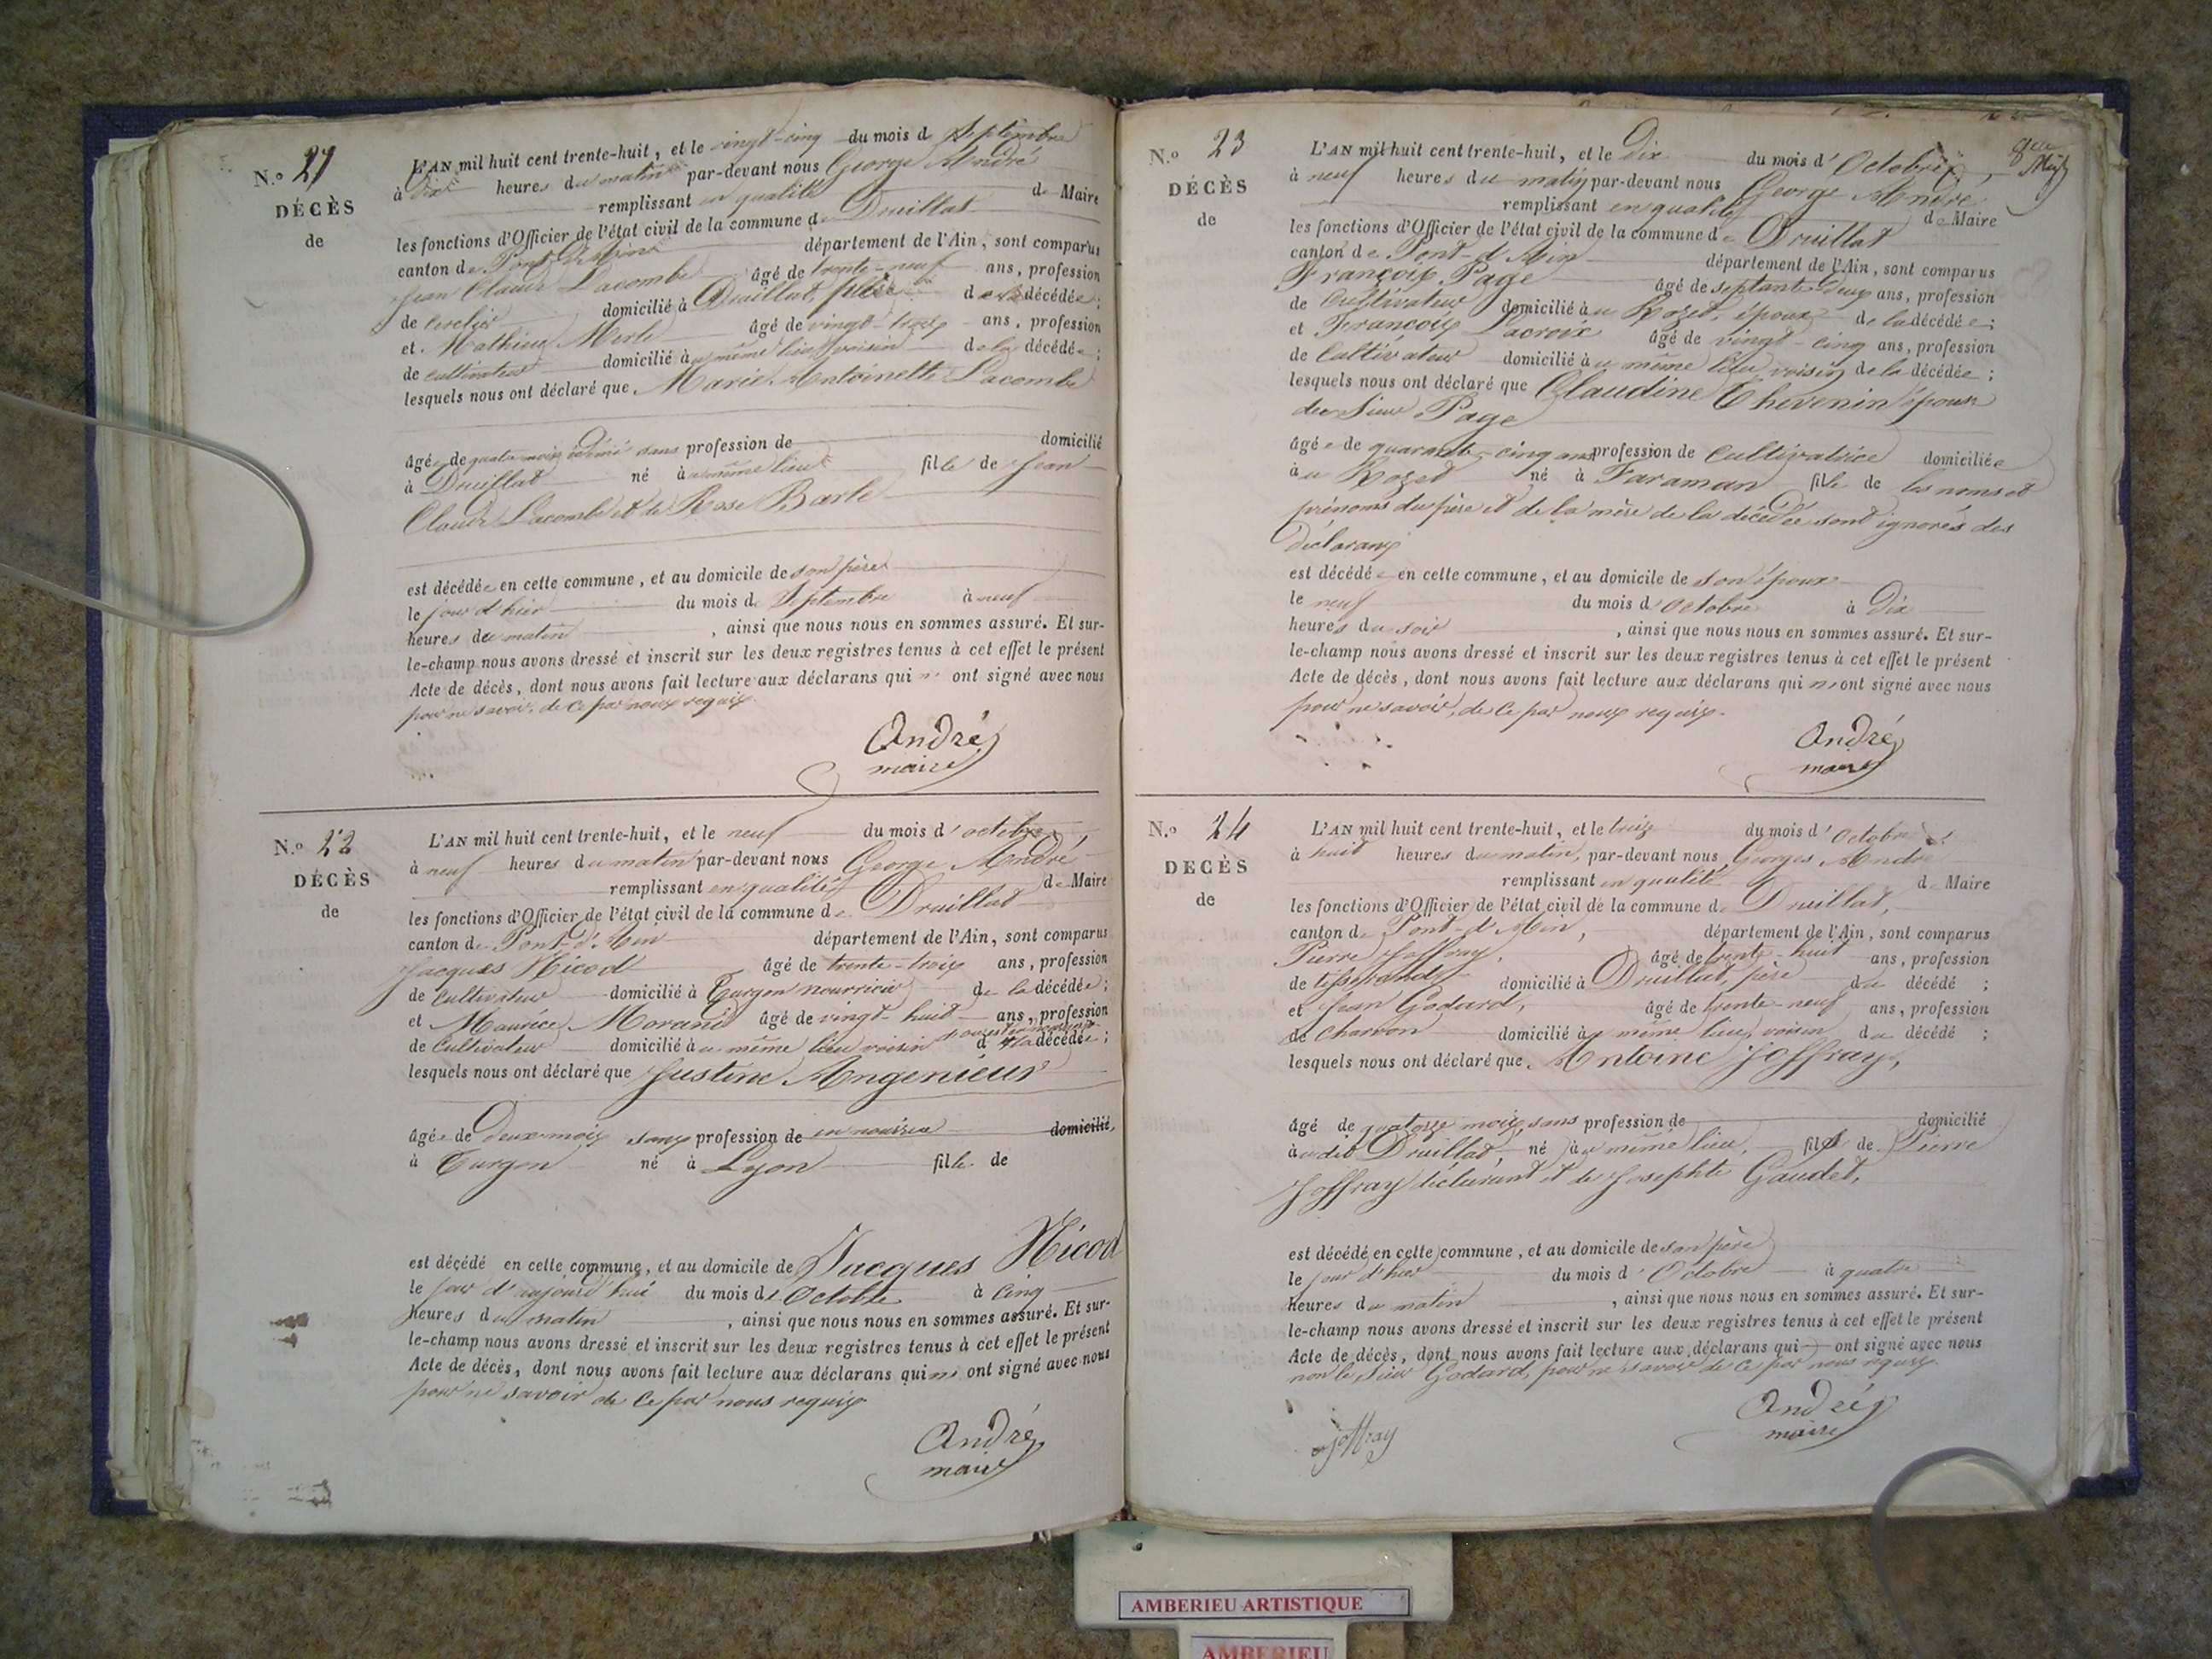 N.º 21
DÉCÈS
de
L'AN mil huit cent trente-huit, et le vingt-cinq du mois de Septembre
à dix heures du matin par-devant nous George André
remplissant en qualité de Maire
les fonctions d'Officier de l'état civil de la commune de Druillat
canton de Pont-d'Ain département de l'Ain, sont comparus
Jean Claude Lacombe âgé de trente-neuf ans, profession
de domicilié à Druillat, père de la décédée;
et Mathieu Merle âgé de vingt-trois ans, profession
de cultivateur domicilié au même lieu, voisin de la décédée;
lesquels nous ont déclaré que Marie Antoinette Lacombe
âgée de quatre mois et demi sans profession de domicilié
à Druillat né au même lieu fille de Jean
Claude Lacombe et de Rose Barle
est décédée en cette commune, et au domicile de son père
le jour d'hier du mois de Septembre à neuf
heures du matin, ainsi que nous nous en sommes assuré. Et sur-
le-champ nous avons dressé et inscrit sur les deux registres tenus à cet effet le présent
Acte de décès, dont nous avons fait lecture aux déclarans qui n' ont signé avec nous
pour ne savoir, de ce par nous requis.
André
maire
N.º 22
DÉCÈS
de
L'AN mil huit cent trente-huit, et le neuf du mois d'octobre,
à neuf heures du matin par-devant nous George André
remplissant en qualité de Maire
les fonctions d'Officier de l'état civil de la commune de Druillat
canton de Pont-d'Ain département de l'Ain, sont comparus
Jacques Nicod âgé de trente-trois ans, profession
de cultivateur domicilié à Turgon nourricier de la décédée;
et Maurice Morand âgé de vingt-huit ans, profession
de cultivateur domicilié au même lieu voisin de la décédée;
lesquels nous ont déclaré que Justine Angenieur
âgée de deux mois sans profession de en nourrice domicilié
à Turgon né à Lyon fille de
est décédé en cette commune, et au domicile de Jacques Nicod
le jour d'aujourd'hui du mois d'Octobre à cinq
heures du matin, ainsi que nous nous en sommes assuré. Et sur-
le-champ nous avons dressé et inscrit sur les deux registres tenus à cet effet le présent
Acte de décès, dont nous avons fait lecture aux déclarans qui n' ont signé avec nous
pour ne savoir de ce par nous requis
André
maire
N.º 23
DÉCÈS
de
L'AN mil huit cent trente-huit, et le Dix du mois d'Octobre,
à neuf heures du matin par-devant nous George André
remplissant en qualité de Maire
les fonctions d'Officier de l'état civil de la commune de Druillat
canton de Pont-d'Ain département de l'Ain, sont comparus
François Page âgé de septante-deux ans, profession
de Cultivateur domicilié au Rozet, époux de la décédée;
et François Lacroix âgé de vingt-cinq ans, profession
de Cultivateur domicilié au même lieu, voisin de la décédée;
lesquels nous ont déclaré que Claudine Thevenin épouse
du Sieur Page
âgée de quarante-cinq ans profession de Cultivatrice domiciliée
au Rozet né à Faraman fille de les noms et
prénoms du père et de la mère de la décédée sont ignorés des
déclarans
est décédée en cette commune, et au domicile de son époux
le neuf du mois d'Octobre à dix
heures du soir, ainsi que nous nous en sommes assuré. Et sur-
le-champ nous avons dressé et inscrit sur les deux registres tenus à cet effet le présent
Acte de décès, dont nous avons fait lecture aux déclarans qui n'ont signé avec nous
pour ne savoir, de ce par nous requis.
André
maire
N.º 24
DÉCÈS
de
L'AN mil huit cent trente-huit, et le treize du mois d'Octobre
à huit heures du matin, par-devant nous Georges André
remplissant en qualité de Maire
les fonctions d'Officier de l'état civil de la commune de Druillat,
canton de Pont-d'Ain, département de l'Ain, sont comparus
Pierre Joffray, âgé de trente-huit ans, profession
de tisserand domicilié à Druillat, père du décédé;
et Jean Godard, âgé de trente-neuf ans, profession
de charron domicilié au même lieu, voisin du décédé;
lesquels nous ont déclaré que Antoine Joffray,
âgé de quatorze mois, sans profession de domicilié
audit Druillat, né au même lieu, fils de Pierre
Joffray déclarant et de Josephte Gaudet,
est décédé en cette commune, et au domicile de son père
le jour d'hier du mois d'Octobre à quatre
heures du matin, ainsi que nous nous en sommes assuré. Et sur-
le-champ nous avons dressé et inscrit sur les deux registres tenus à cet effet le présent
Acte de décès, dont nous avons fait lecture aux déclarans qui ont signé avec nous
non le Sieur Godard, pour ne savoir de ce par nous requis
Joffray
André
maire
AMBERIEU ARTISTIQUE
AMBERIEU